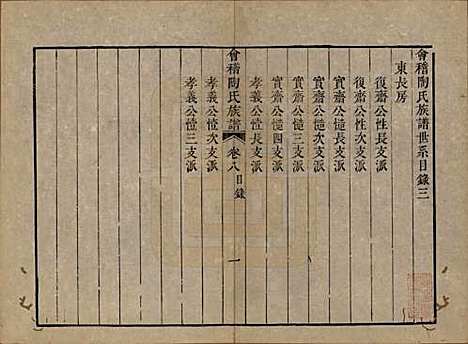 會稽陶氏族譜世系目錄三
東長房
復齋公性長支派
復齋公性次支派
實齋公愷長支派
實齋公愷次支派
實齋公愷三支派
實齋公愷四支派
孝義公愷長支派
會稽陶氏族譜
卷八目錄
一
孝義公愷次支派
孝義公愷三支派